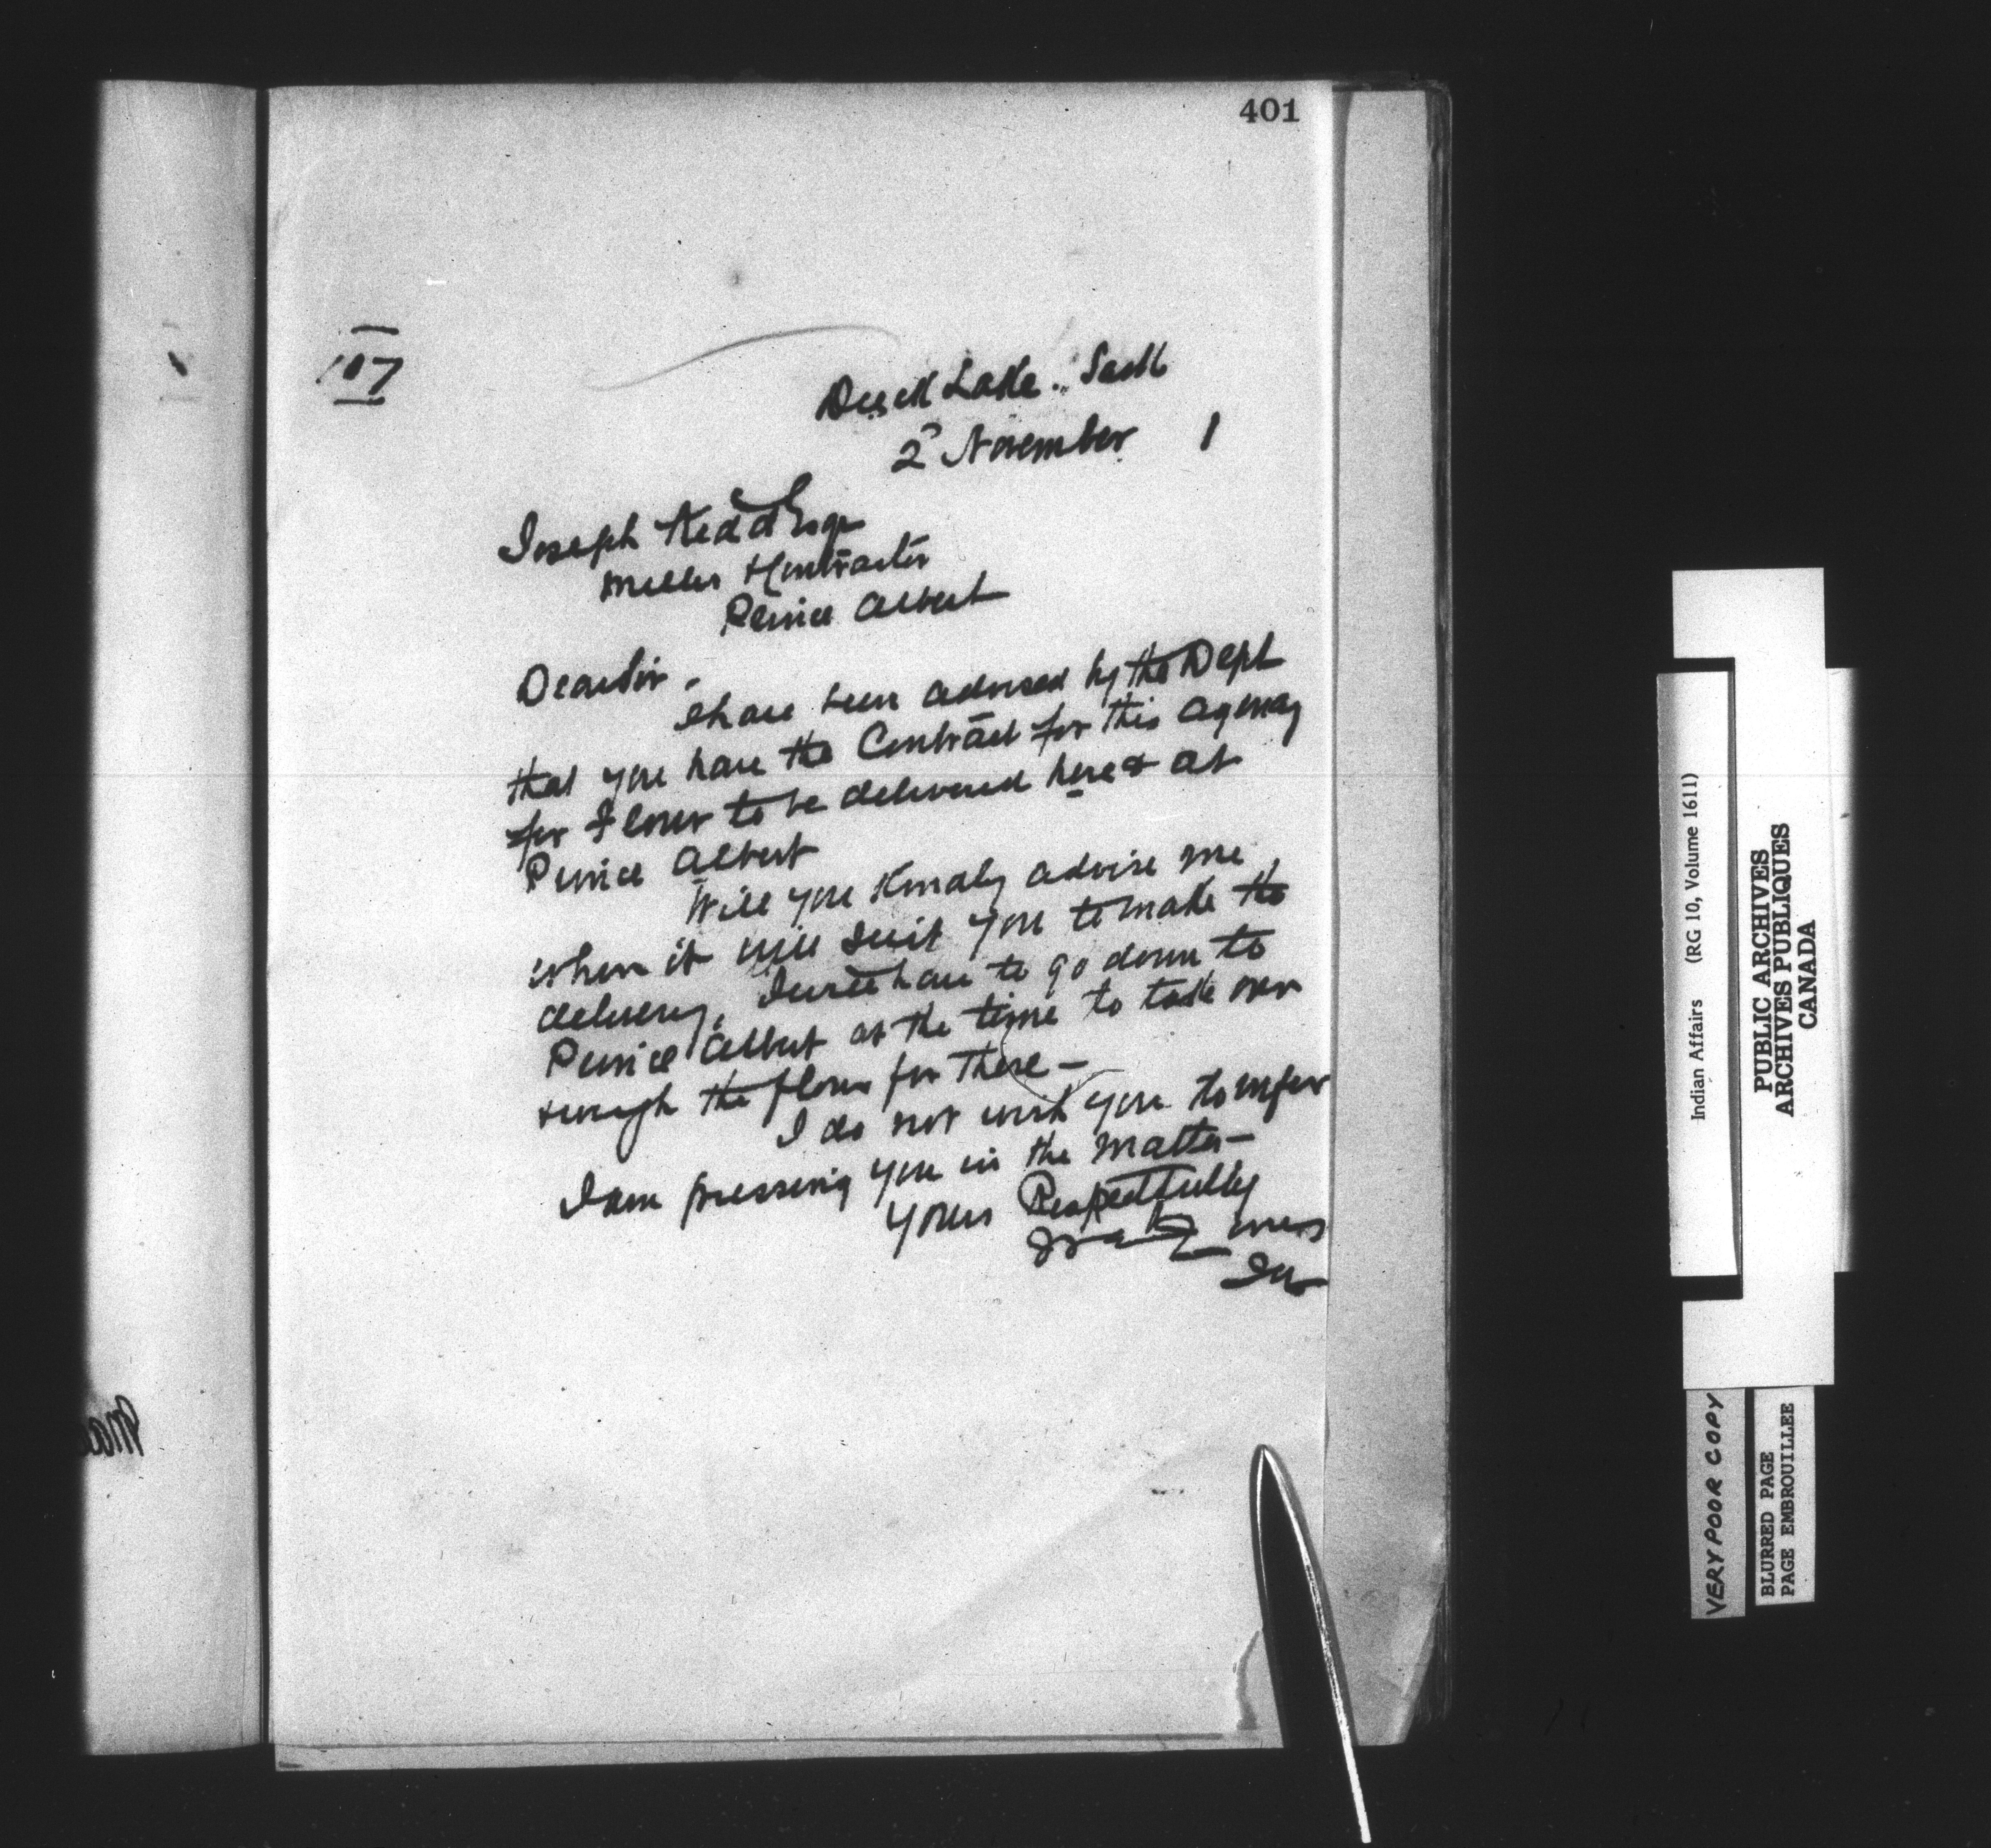 401
107
Duck Lake. Sask
2 November 1
Joseph Kidd Esqr
Miller & Contractor
Prince Albert
Dear Sir.
I have been advised by the Dept
that you have the Contract for this agency
for Flour to be delivered here & at
Prince Albert
Will you Kindly advise me
when it will suit you to make the
delivery, I will have to go down to
Prince Albert at the time to take over
& weigh the flour for there -
I do not wish you to infer
I am pressing you in the matter -
Yours Respectfully
Indian Affairs (RG 10, Volume 1611)
PUBLIC ARCHIVES
ARCHIVES PUBLIQUES
CANADA
VERY POOR COPY
BLURRED PAGE
PAGE EMBROUILLEE